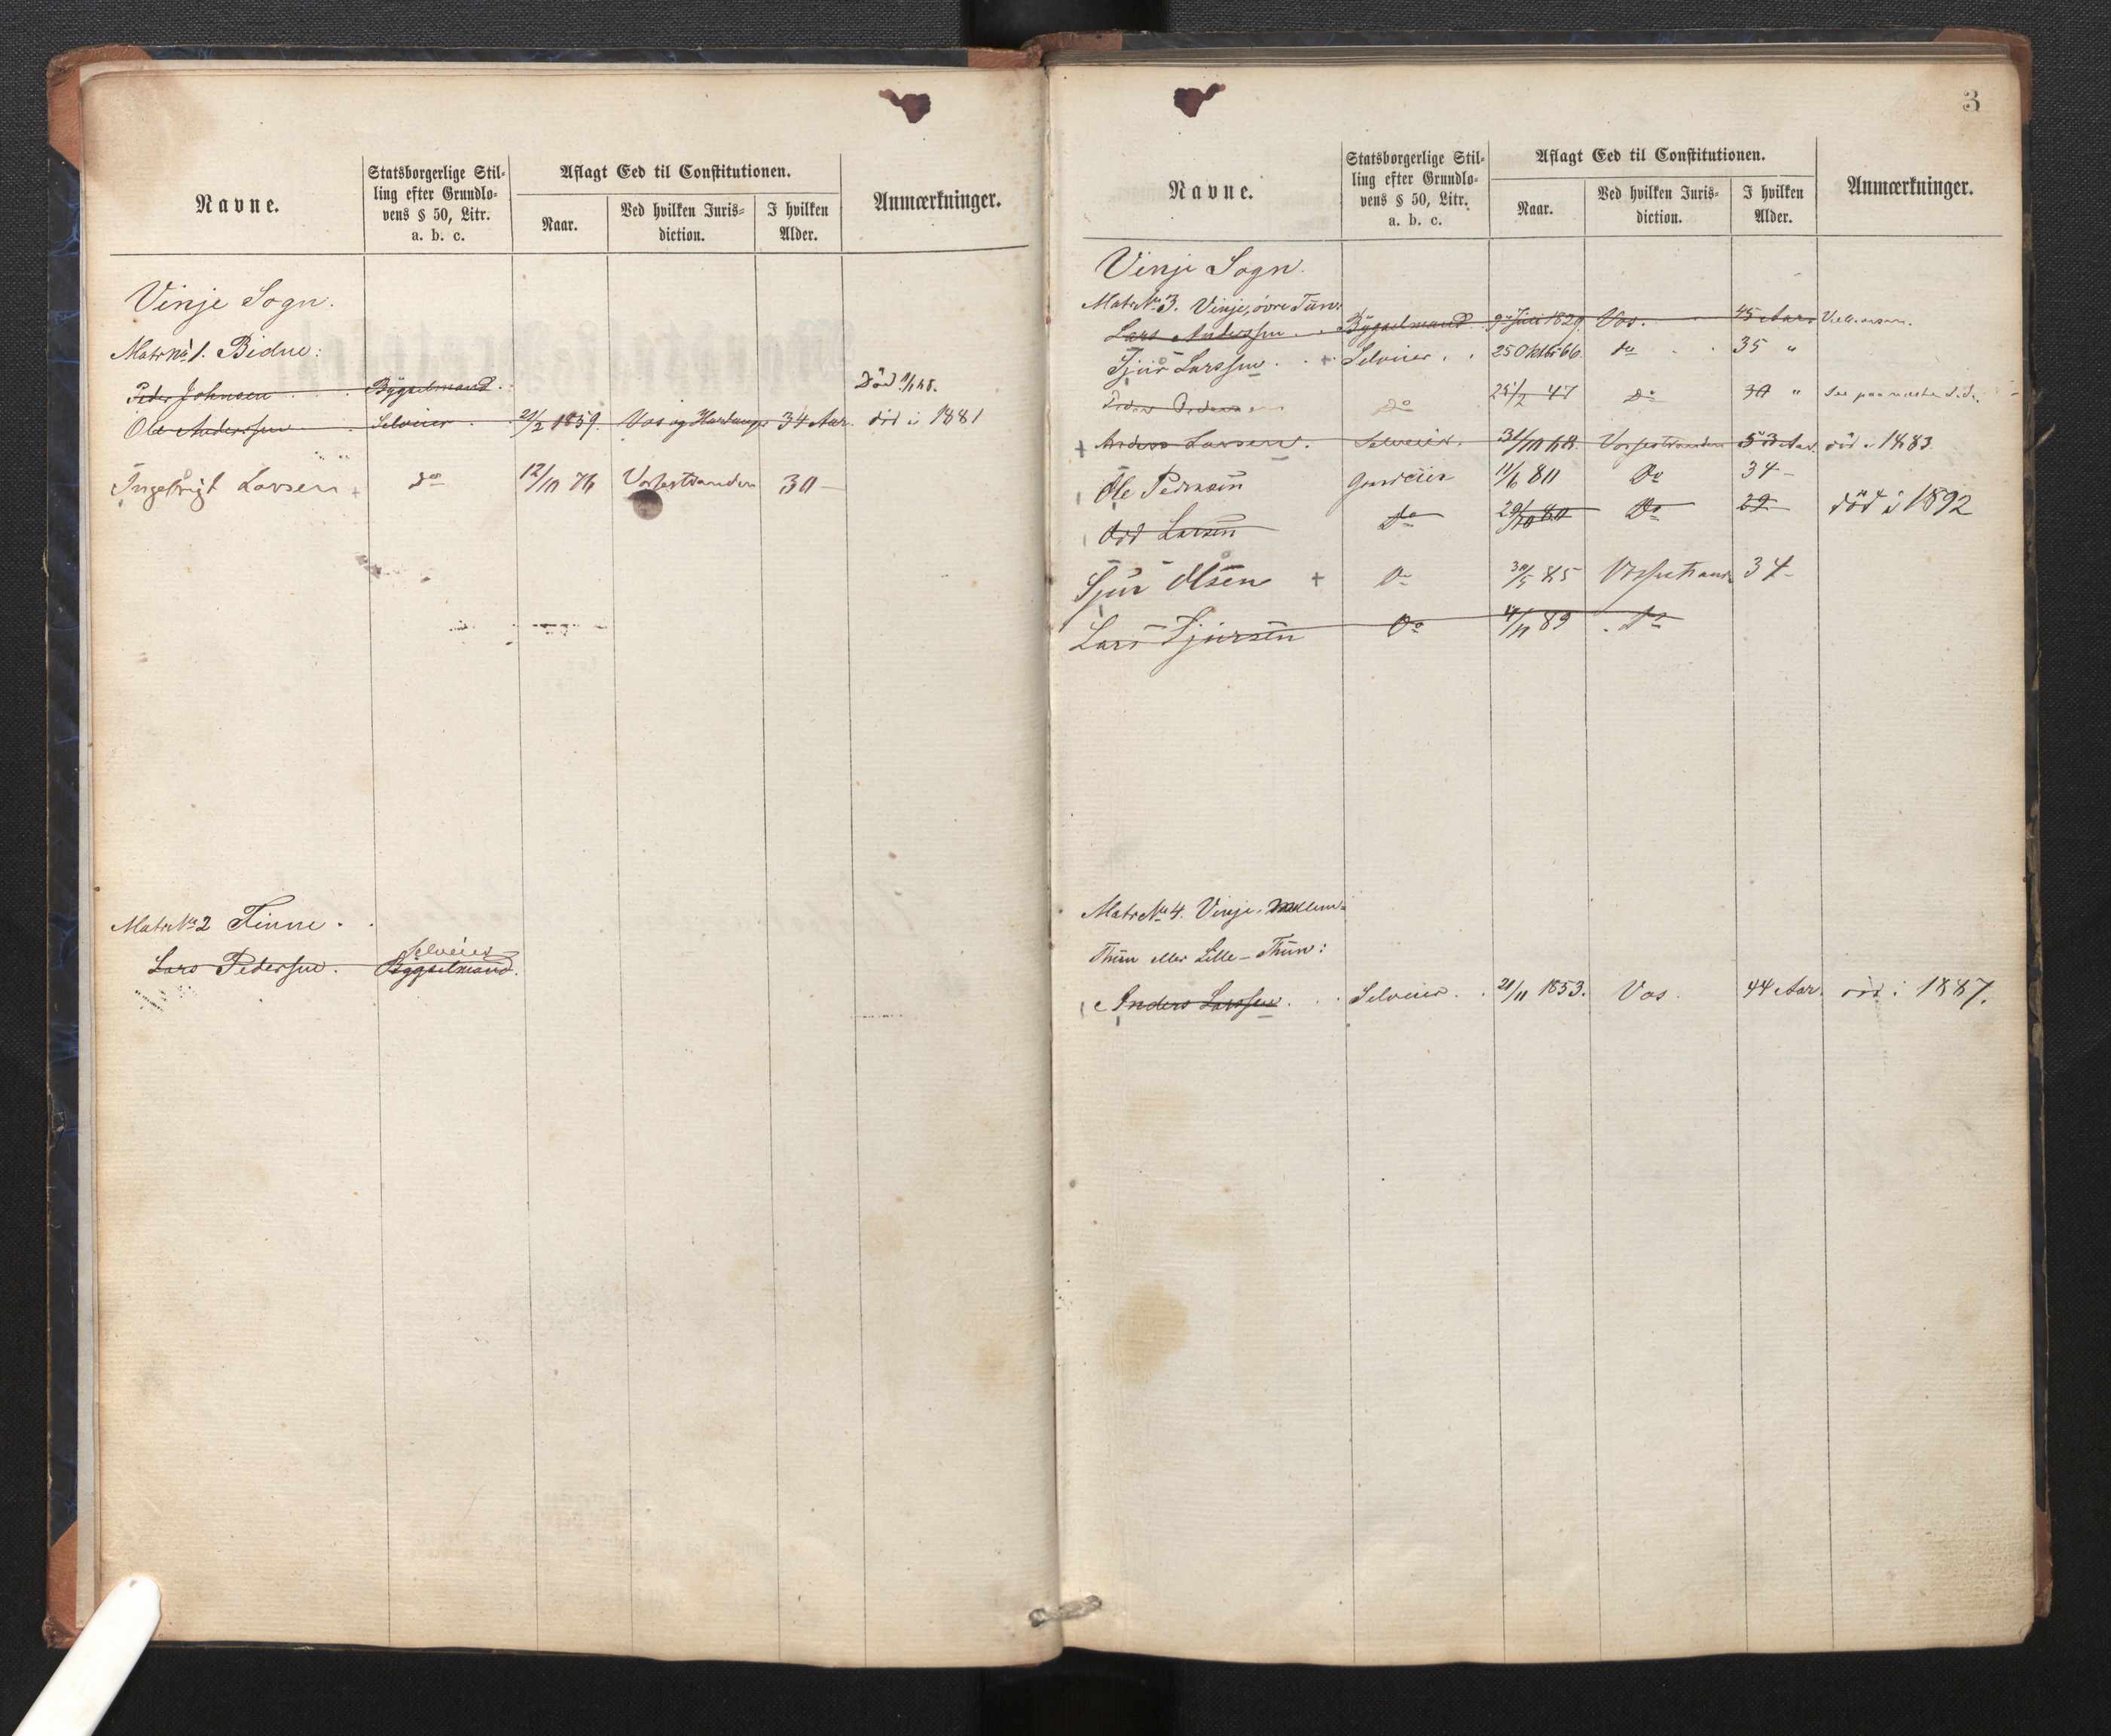 Navne.
Statsborgerlige Stil-
ling efter Grundlo-
vens § 50, Litr.
a. b. c.
Aflagt Eed til Constitutionen.
Naar.
Ved hvilken Juris-
diction.
I hvilken
Alder.
Anmærkninger.
Vinje Sogn.
Matr No 1. Bidne:
Peder Johnsen Bÿgselmand. Död
Ole Anderssen Selveier 2/2 1859. Vos og Hardanger 34 Aar. död i 1881
Ingebrigt Larsen + do 12/10 76 Vossestranden 30 –
Matr No 2 Finne.
Selveier
Lars Pederssen. Bygselmand.
3
Navne.
Statsborgerlige Stil-
ling efter Grundlo-
vens § 50, Litr.
a. b. c.
Aflagt Eed til Constitutionen.
Naar.
Ved hvilken Juris-
diction.
I hvilken
Alder.
Anmærkninger.
Vinje Sogn.
Matr No 3. Vinje, övre Tün:
Lars Anderssen Bÿgselmand 9de Juli 1829. Vos. 45 Aar.
Sjur Larssen + Selveier 25 Oktbr 66. do 35 "
do 25/2 47 do 30 " See paa næste Side
+ Anders Larsen. Selveier. 31/10 68. Vossestranden 53 Aar. död i 1883.
Ole Pedersen Gardeier 11/6 80 Do 34 –
Odd Larsen Do 29/10 80 Do 29 död i 1892
Sjur Olsen + Do 30/5 85 Vossestrand 34 –
Lars Sjursen Do 4/11 89 Do
Matr No 4. Vinje, Mellem-
Thün eller Lille-Thün:
Anders Larssen Selveier 21/11 1853. Vos 44 Aar. död i 1887.